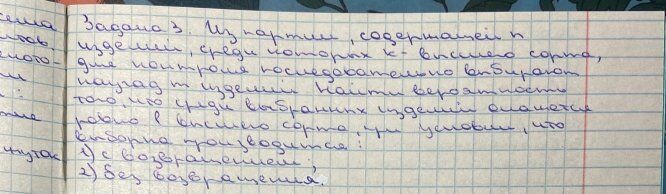 сема
нтов
много-
ми
:
ние
инуток
Задача 3. Из партии, содержащей n
изделий, среди которых k - высшего сорта,
для контроля последовательно выбирают
наугад m изделий. Найти вероятность
того, что среди выбранных изделий окажется
ровно l высшего сорта, при условии, что
выборка производится:
1) с возвращением;
2) без возвращения.